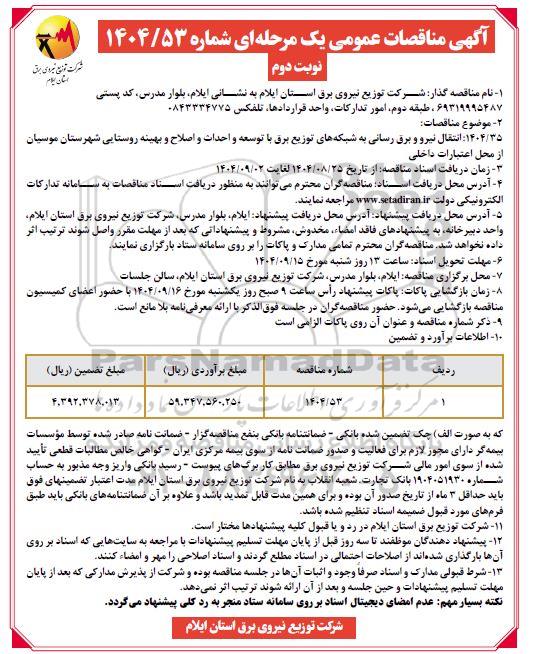 آگهی مناقصات عمومی یک مرحله‌ای شماره ۱۴۰۴/۵۳
نوبت دوم
شرکت توزیع نیروی برق
استان ایلام
۱-نام مناقصه گذار: شرکت توزیع نیروی برق استان ایلام به نشانی ایلام، بلوار مدرس، کد پستی
۶۹۳۱۹۹۵۴۸۷ ، طبقه دوم، امور تدارکات، واحد قراردادها، تلفکس ۰۸۴۳۳۳۳۴۷۷۵
۲-موضوع مناقصات:
۱۴۰۴/۳۵:انتقال نیرو و برق رسانی به شبکه‌های توزیع برق با توسعه و احداث و اصلاح و بهینه روستایی شهرستان موسیان
از محل اعتبارات داخلی
۳- زمان دریافت اسناد مناقصه: از تاریخ ۱۴۰۴/۰۸/۲۵ لغایت ۱۴۰۴/۰۹/۰۲
۴- آدرس محل دریافت اسناد: مناقصه‌گران محترم می‌توانند به منظور دریافت اسناد مناقصات به سامانه تدارکات
الکترونیکی دولت www.setadiran.ir مراجعه نمایند.
۵- آدرس محل دریافت پیشنهاد: آدرس محل دریافت پیشنهاد: ایلام، بلوار مدرس، شرکت توزیع نیروی برق استان ایلام،
واحد دبیرخانه، به پیشنهادهای فاقد امضاء، مخدوش، مشروط و پیشنهاداتی که بعد از مهلت مقرر واصل شوند ترتیب اثر
داده نخواهد شد. مناقصه‌گران محترم تمامی مدارک و پاکات را بر روی سامانه ستاد بارگزاری نمایند.
۶- مهلت تحویل اسناد: ساعت ۱۳ روز شنبه مورخ ۱۴۰۴/۰۹/۱۵
۷- محل برگزاری مناقصه: ایلام، بلوار مدرس، شرکت توزیع نیروی برق استان ایلام، سالن جلسات
۸- زمان بازگشایی پاکات: پاکات پیشنهاد رأس ساعت ۹ صبح روز یکشنبه مورخ ۱۴۰۴/۰۹/۱۶ با حضور اعضای کمیسیون
مناقصه بازگشایی می‌شود. حضور مناقصه‌گران در جلسه فوق‌الذکر با ارائه معرفی‌نامه بلا مانع است.
۹- ذکر شماره مناقصه و عنوان آن روی پاکات الزامی است
۱۰- اطلاعات برآورد و تضمین
ردیف شماره مناقصه مبلغ برآوردی (ریال) مبلغ تضمین (ریال)
۱ ۱۴۰۴/۵۳ ۵۹.۳۴۷.۵۶۰.۲۵۰ ۴.۳۹۲.۳۷۸.۰۱۳
که به صورت الف) چک تضمین شده بانکی - ضمانتنامه بانکی بنفع مناقصه‌گزار - ضمانت نامه صادر شده توسط مؤسسات
بیمه‌گر دارای مجوز لازم برای فعالیت و صدور ضمانت نامه از سوی بیمه مرکزی ایران - گواهی خالص مطالبات قطعی تأیید
شده از سوی امور مالی شرکت توزیع نیروی برق مطابق کار برگ‌های پیوست - رسید بانکی واریز وجه مذبور به حساب
شماره ۱۹۰۴۰۵۱۹۳۰ بانک تجارت. شعبه انقلاب به نام شرکت توزیع نیروی برق استان ایلام. مدت اعتبار تضمینهای فوق
باید حداقل ۳ ماه از تاریخ صدور آن بوده و برای همین مدت قابل تمدید باشد و علاوه بر آن ضمانتنامه‌های بانکی باید طبق
فرم‌های مورد قبول ضمیمه اسناد تنظیم شده باشد.
۱۱- شرکت توزیع برق استان ایلام در رد و یا قبول کلیه پیشنهادها مختار است.
۱۲- پیشنهاد دهندگان موظفند تا سه روز قبل از پایان مهلت تسلیم پیشنهادات با مراجعه به سایت‌هایی که اسناد بر روی
آن‌ها بارگذاری شده‌اند از اصلاحات احتمالی در اسناد مطلع گردند و اسناد اصلاحی را مهر و امضاء کنند.
۱۳-شرط قبولی مدارک و اسناد صرفاً وجود و اثبات آن‌ها در جلسه مناقصه بوده و شرکت از پذیرش مدارکی که بعد از پایان
مهلت تسلیم پیشنهادات و حین جلسه و بعد از آن ارائه شوند ترتیب اثر نمی‌دهد.
نکته بسیار مهم: عدم امضای دیجیتال اسناد بر روی سامانه ستاد منجر به رد کلی پیشنهاد می‌گردد.
شرکت توزیع نیروی برق استان ایلام
ParsNamadData